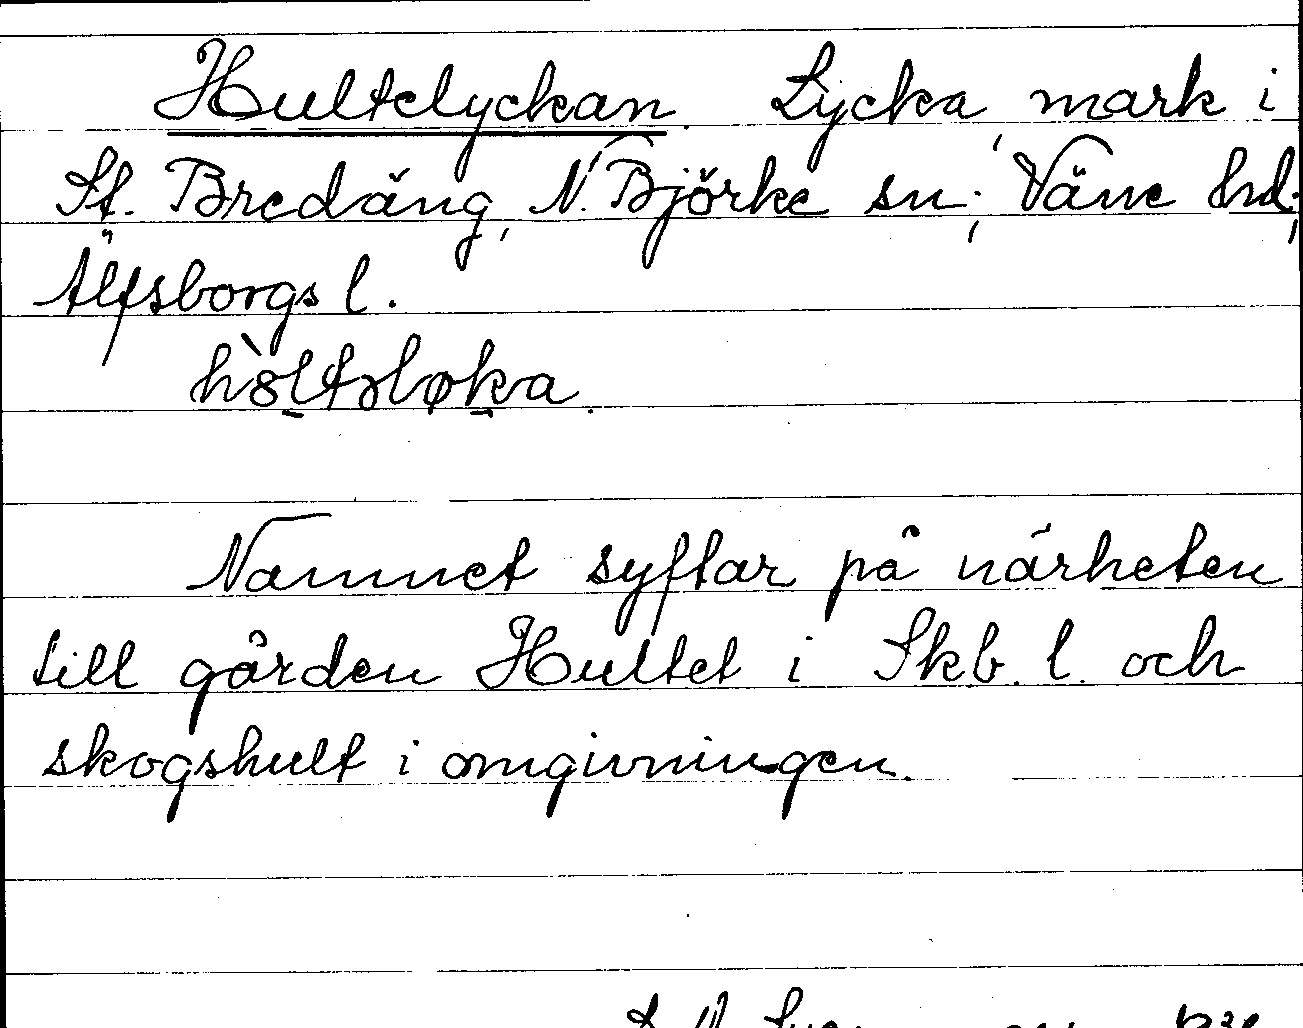 Hultelyckan. Lycka, mark i
St. Bredäng, N. Björke sn, Väne hd,
Älfsborgs l.
Namnet syftar på närheten
till gården Hultet i Skb. l. och
skogshult i omgivningen.